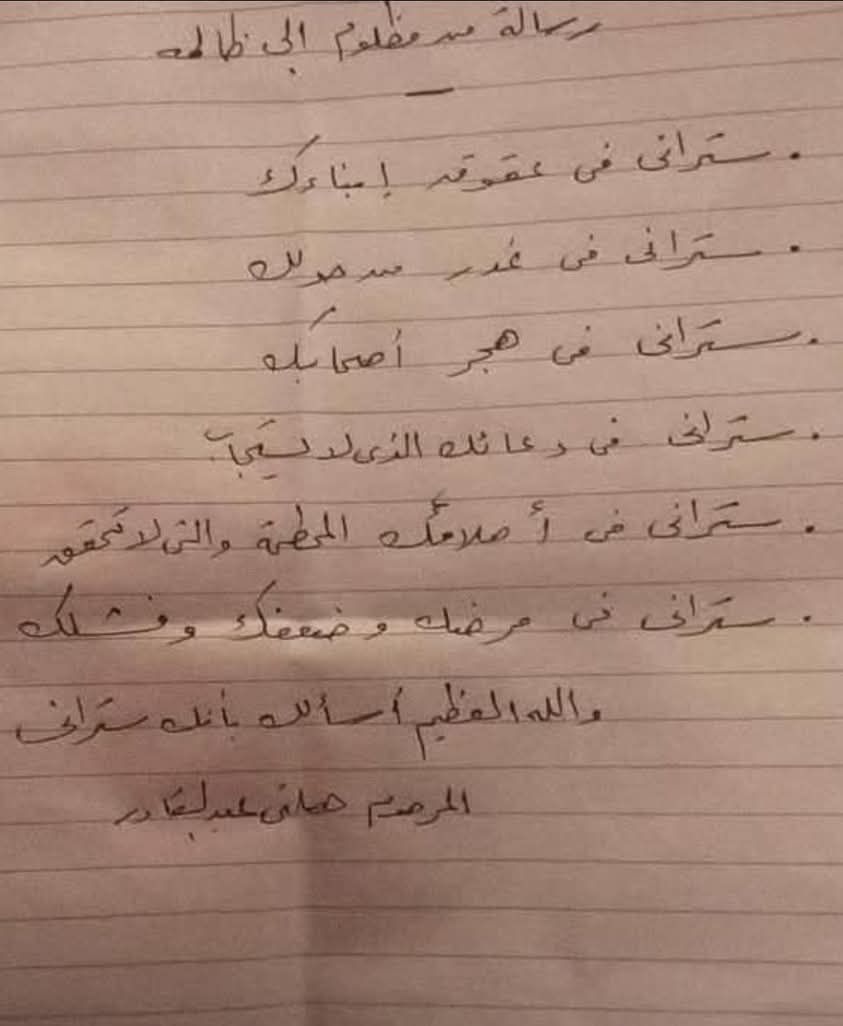 رسالة من مظلوم إلى ظالمه
. ستراني في عقوق إبناءك
. ستراني في غدر من حولك
. ستراني في هجر أصحابك
. ستراني في دعائك الذي لا يستجاب
. ستراني في أحلامك المحطمة والتي لا تتحقق
. ستراني في مرضك وضعفك وفشلك
والله العظيم أسألك بأنك ستراني
المرحوم هاني عبدالقادر